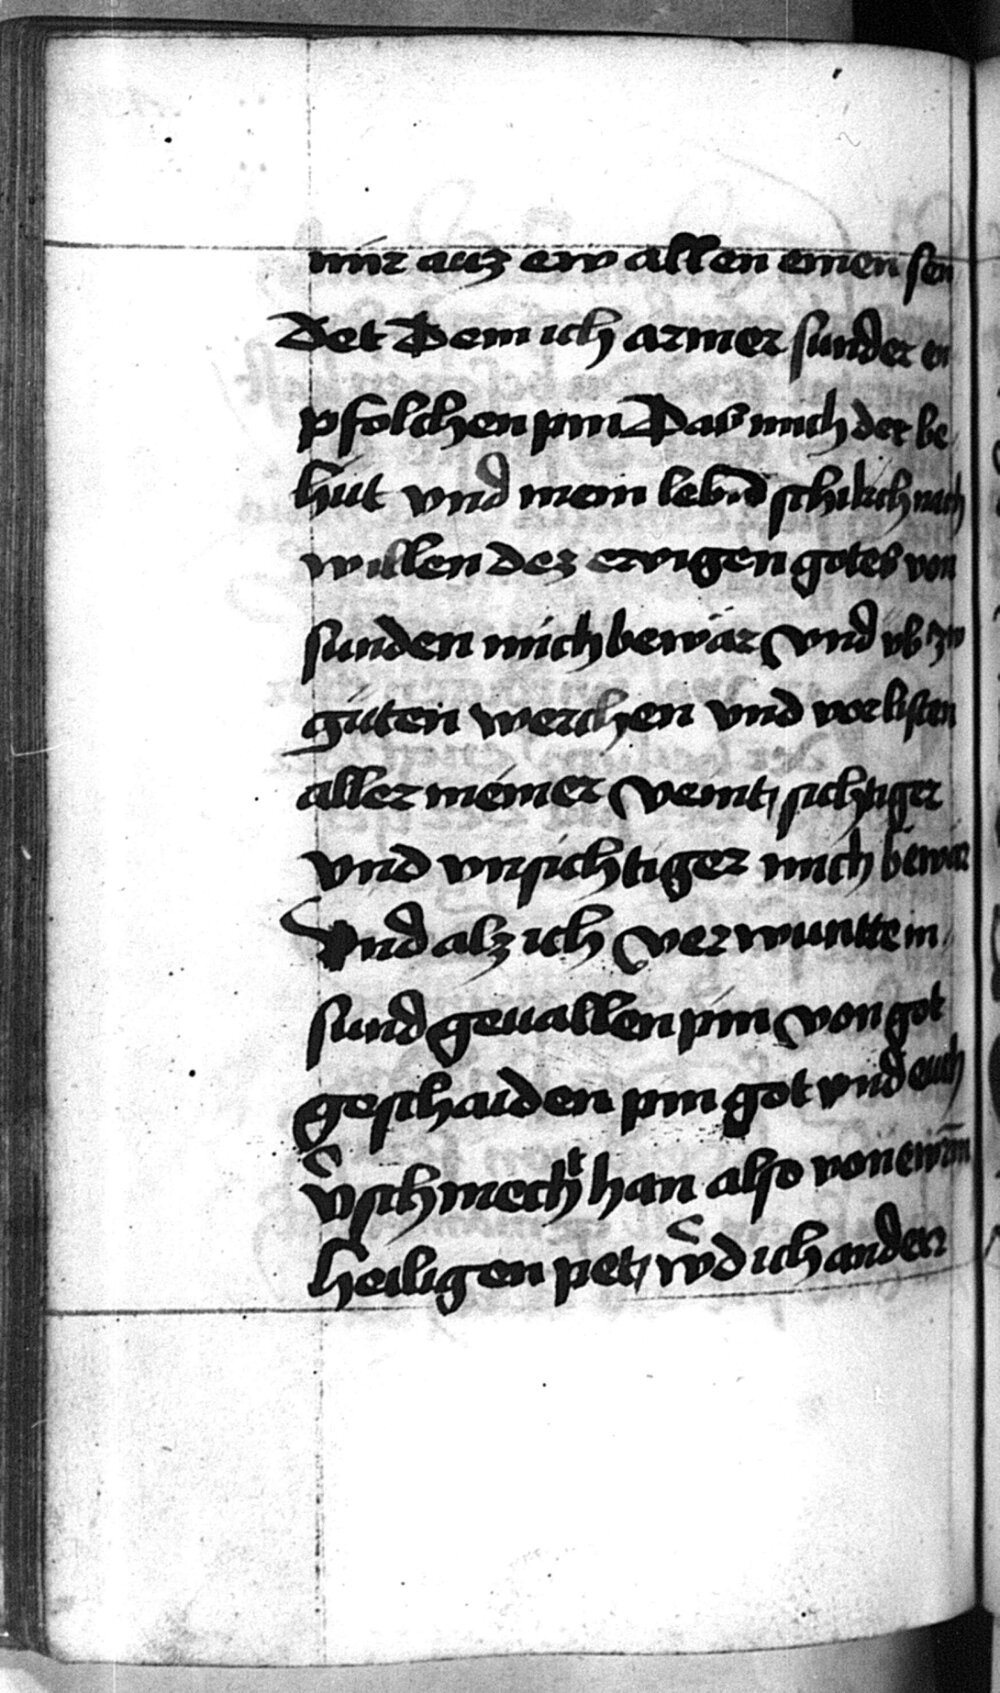 mir auz ew allen einen sen
det Dem ich armer sunder en
pfolchen pin Daß mich der be
hut vnd mein leb nd schiklich nach
willen dez ewigen gotes von
sunden mich bewar vnd vb zw
guten werchen vnd vor listen
aller meiner veint sichtiger
vnd vnsichtiger mich bewar
Vnd alz ich verwuntte in
sund geuallen pin von got
geschaiden pin got vnd euch
vschmecht han also von ewrm
heiligen pet wd ich ander